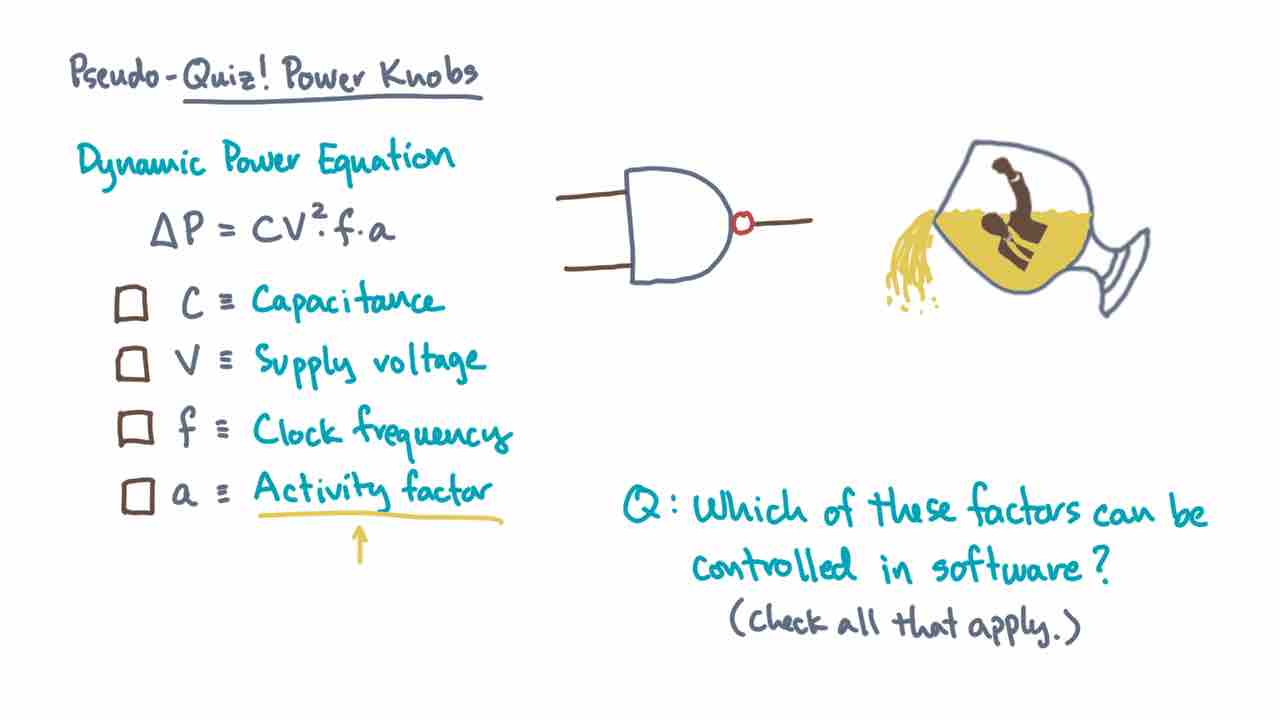 Pseudo-Quiz! Power Knobs
Dynamic Power Equation
ΔP = CV²·f·a
C ≡ Capacitance
V ≡ Supply voltage
f ≡ Clock frequency
a ≡ Activity factor
Q: Which of these factors can be
controlled in software?
(Check all that apply.)